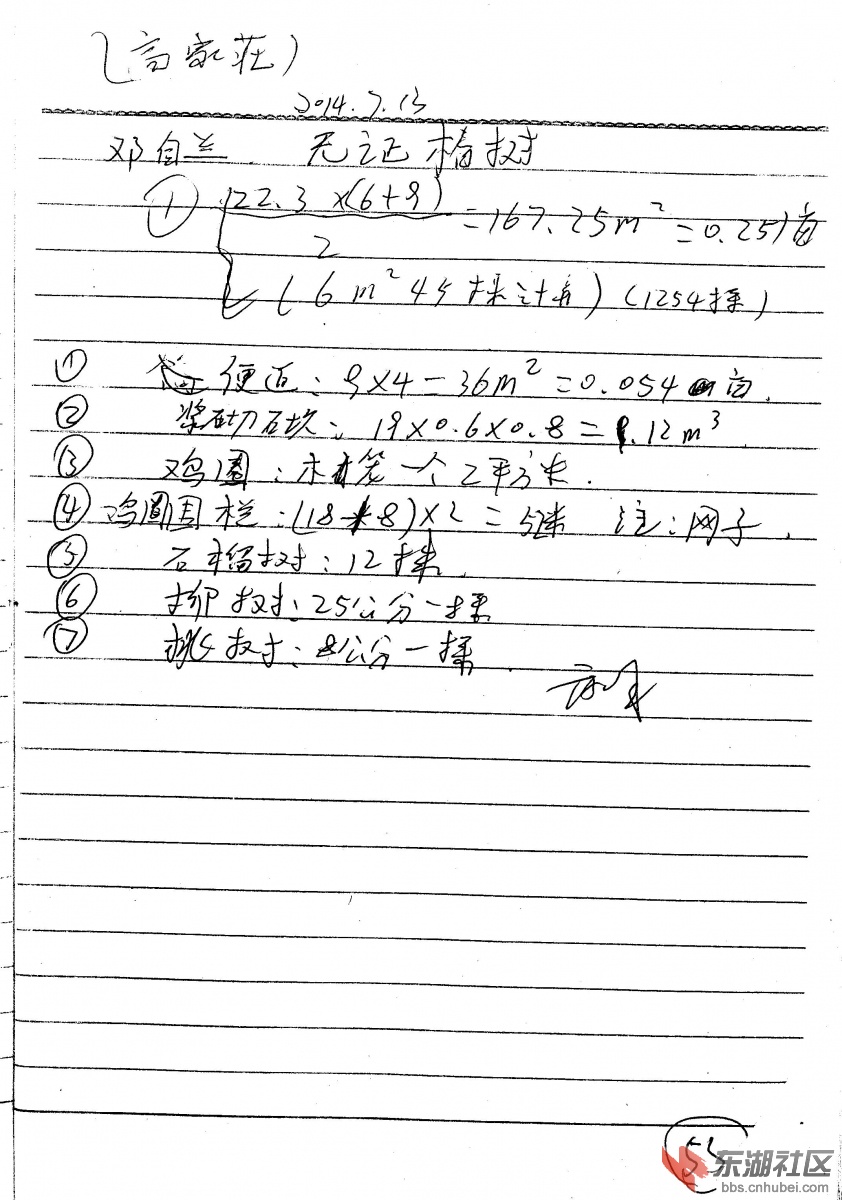 (高家莊)
2014.7.13
邓自兰. 无证椿树
① 22.3×(6+9)/2 =167.25m²=0.251亩
(6m²45棵计算) (1254棵)
① 便道: 9×4=36m²=0.054亩.
② 浆砌石坎: 19×0.6×0.8=9.12m³.
③ 鸡圈: 木笼一个2平方米.
④ 鸡圈围栏: (18+8)×2=52米 注:网子.
⑤ 石榴树: 12棵.
⑥ 柳树: 25公分一棵
⑦ 桃树: 8公分一棵.
53
东湖社区
bbs.cnhubei.com